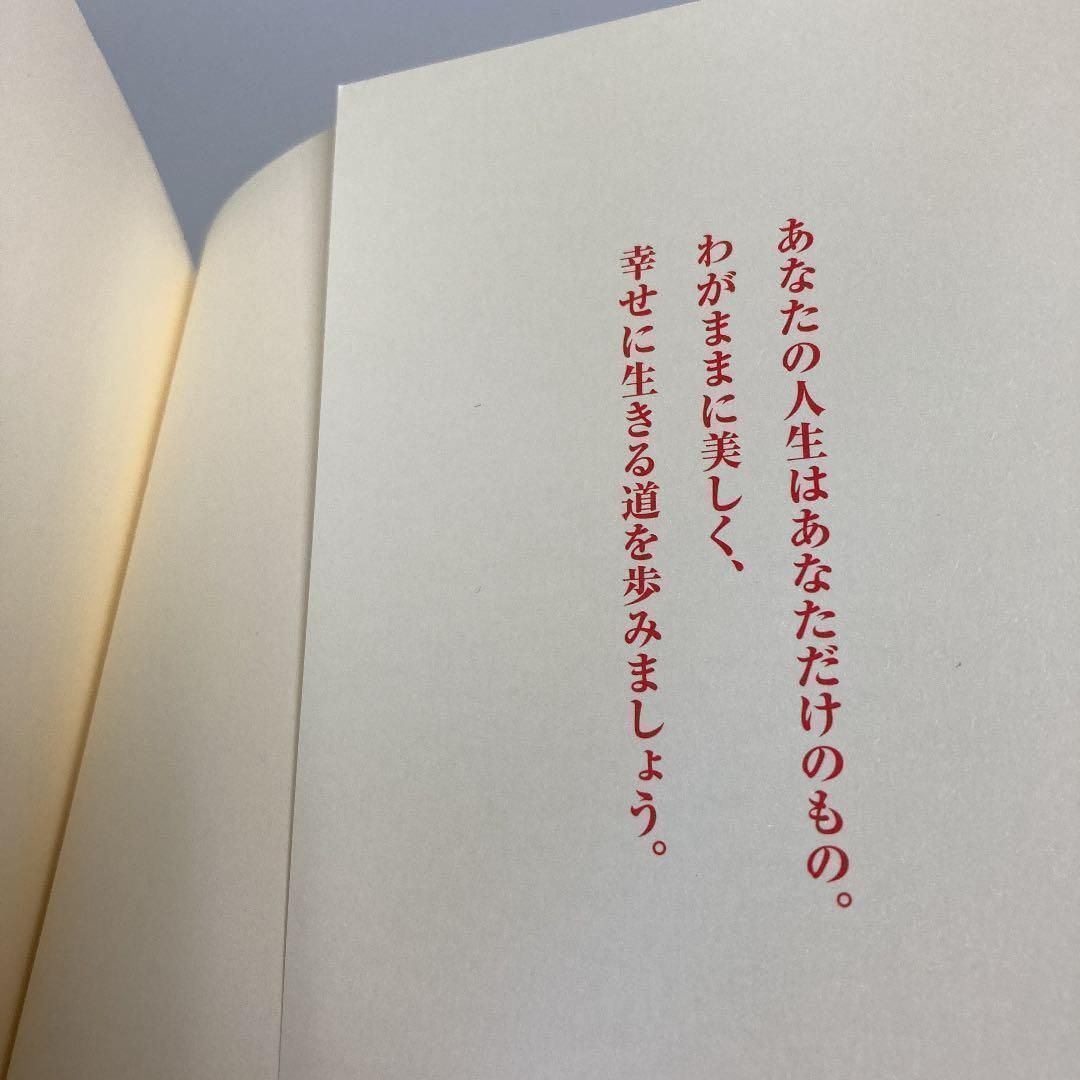 あなたの人生はあなただけのもの。
わがままに美しく、
幸せに生きる道を歩みましょう。